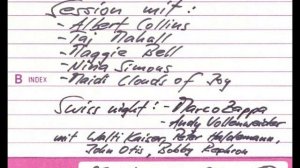 Session mit:
- Albert Collins
- Taj Mahall
- Maggie Bell
- Nina Simons
- Maidi Clouds of Joy
B INDEX
Swiss night: - Marco Zappa
- Andy Vollenweider
mit Walti Kaiser, Peter Haldemann,
John Otis, Bobby